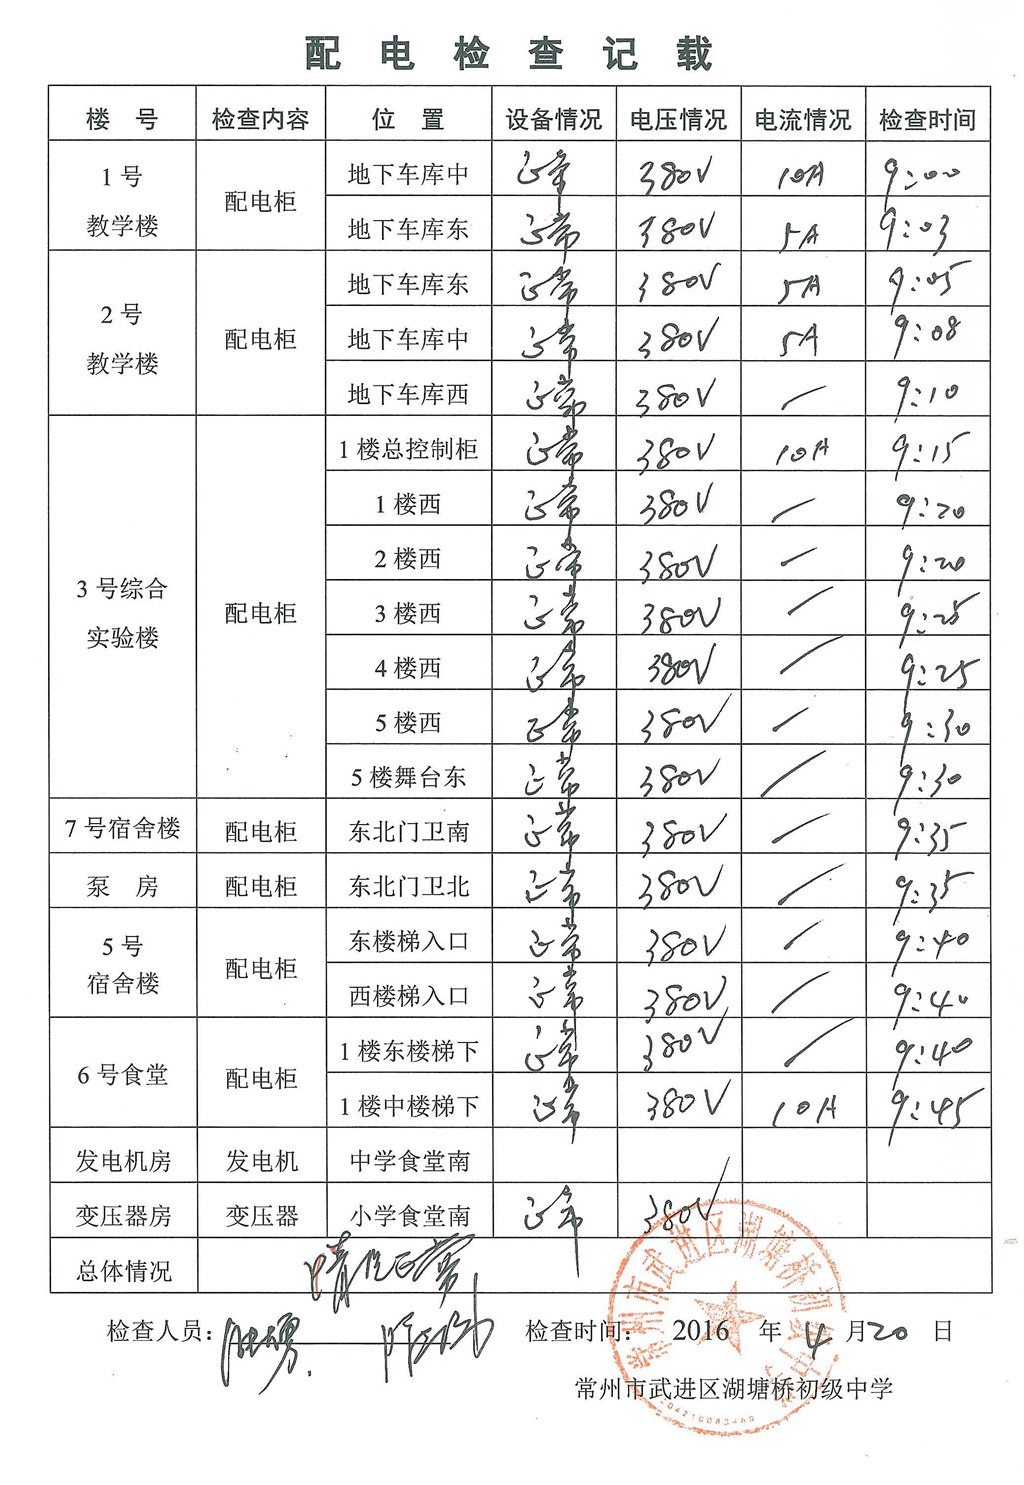 配电检查记载
楼号 检查内容 位置 设备情况 电压情况 电流情况 检查时间
1号教学楼 配电柜 地下车库中 正常 380V 10A 9:00
地下车库东 正常 380V 5A 9:03
2号教学楼 配电柜 地下车库东 正常 380V 5A 9:05
地下车库中 正常 380V 5A 9:08
地下车库西 正常 380V / 9:10
3号综合实验楼 配电柜 1楼总控制柜 正常 380V 10A 9:15
1楼西 正常 380V / 9:20
2楼西 正常 380V / 9:20
3楼西 正常 380V / 9:25
4楼西 正常 380V / 9:25
5楼西 正常 380V / 9:30
5楼舞台东 正常 380V / 9:30
7号宿舍楼 配电柜 东北门卫南 正常 380V / 9:35
泵房 配电柜 东北门卫北 正常 380V / 9:35
5号宿舍楼 配电柜 东楼梯入口 正常 380V / 9:40
西楼梯入口 正常 380V / 9:40
6号食堂 配电柜 1楼东楼梯下 正常 380V / 9:40
1楼中楼梯下 正常 380V 10A 9:45
发电机房 发电机 中学食堂南
变压器房 变压器 小学食堂南 正常 380V
总体情况 情况正常
检查人员: 检查时间: 2016 年 4 月 20 日
常州市武进区湖塘桥初级中学
常州市武进区湖塘桥初级中学